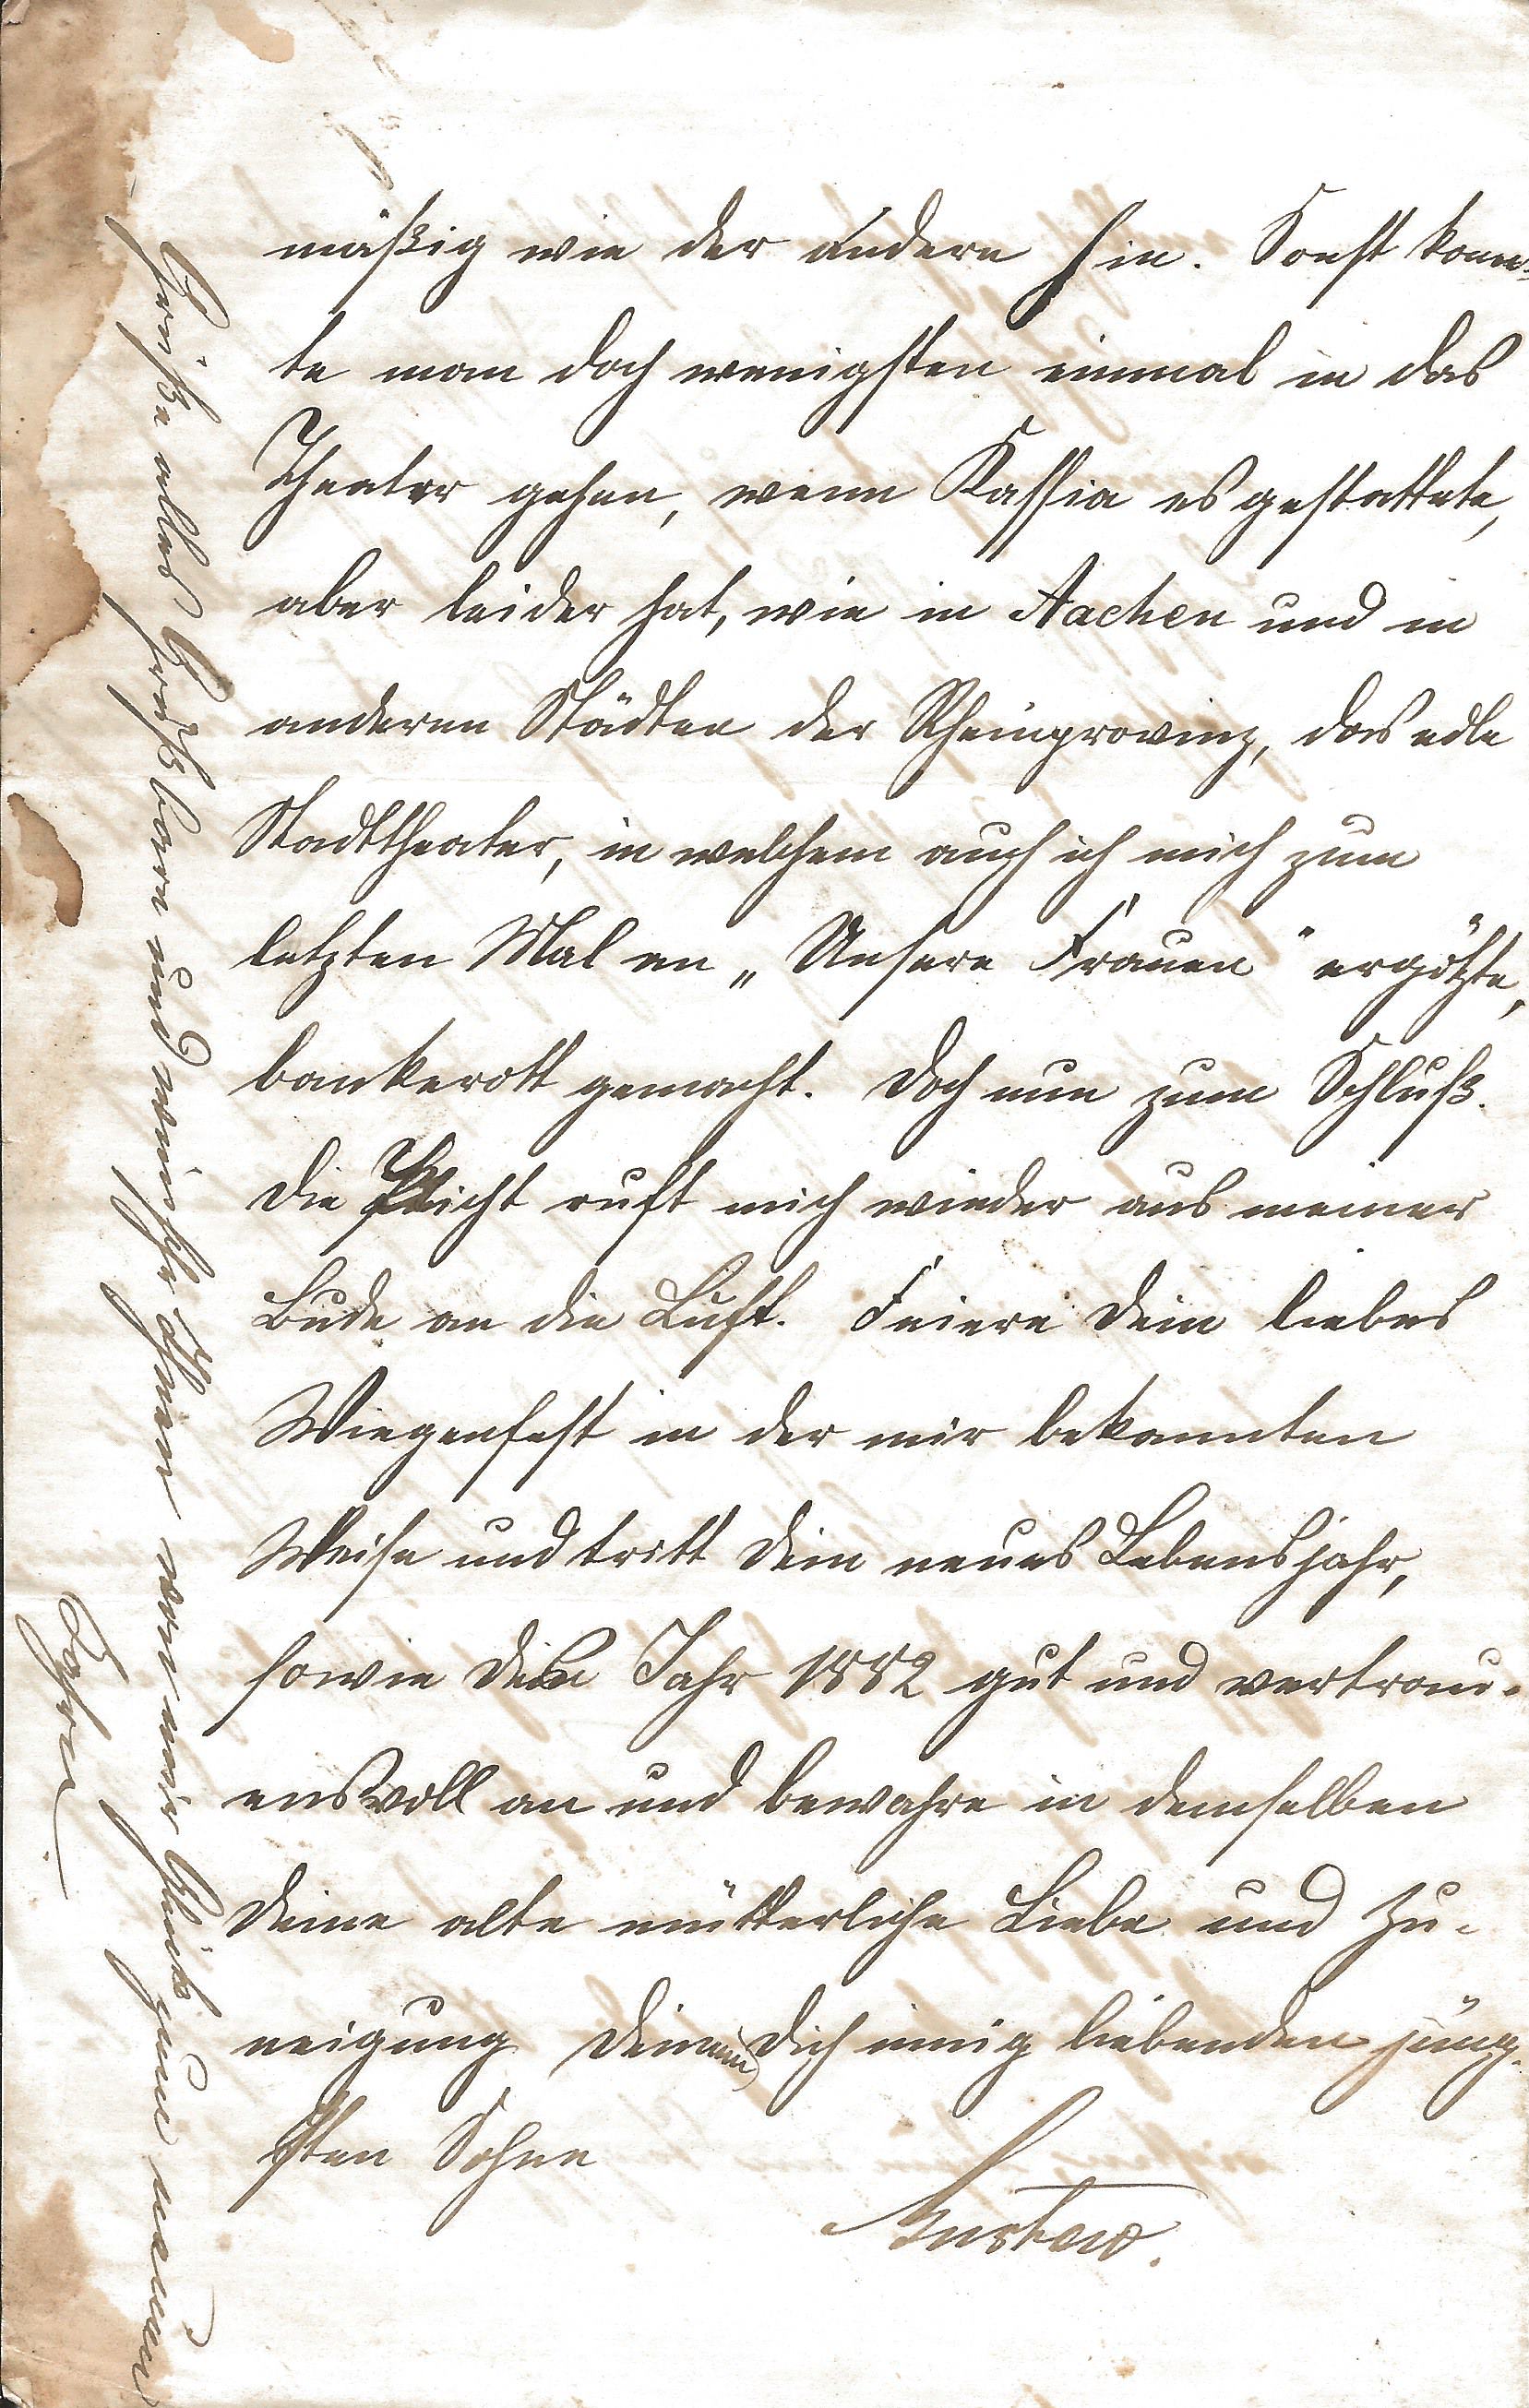 mäßig wie der andere hin. Sonst konn-
te man doch wenigsten einmal in das
Theater gehen, wenn Kassia es gestattete,
aber leider hat, wie in Aachen und in
anderen Städten der Rheinprovinz, das edle
Stadttheater, in welchem auch ich mich zum
letzten Mal an „Unsere Frauen" ergötzte,
bankerott gemacht. Doch nun zum Schluß.
Die Pflicht ruft mich wieder aus meiner
Bude an die Luft. Feiere Dein liebes
Wiegenfest in der mir bekannten
Weise und tritt Dein neues Lebensjahr,
sowie das Jahr 1882 gut und vertrau-
ensvoll an und bewahre in demselben
Deine alte mütterliche Liebe und Zu-
neigung Deinem Dich innig liebenden jüng-
sten Sohne
Gustav.
Grüße alles und wünsche Ihnen von mir Glück zum neuen
Jahre.